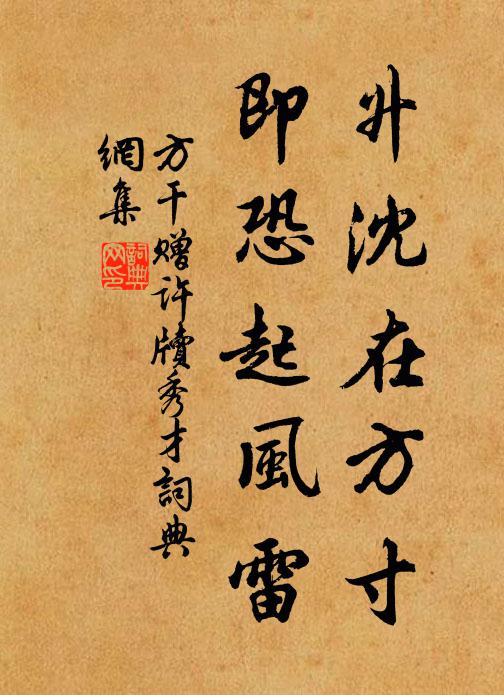 升沈在方寸
即恐起風雷
方干贈許牘秀才詞典
網集
詞典
网印